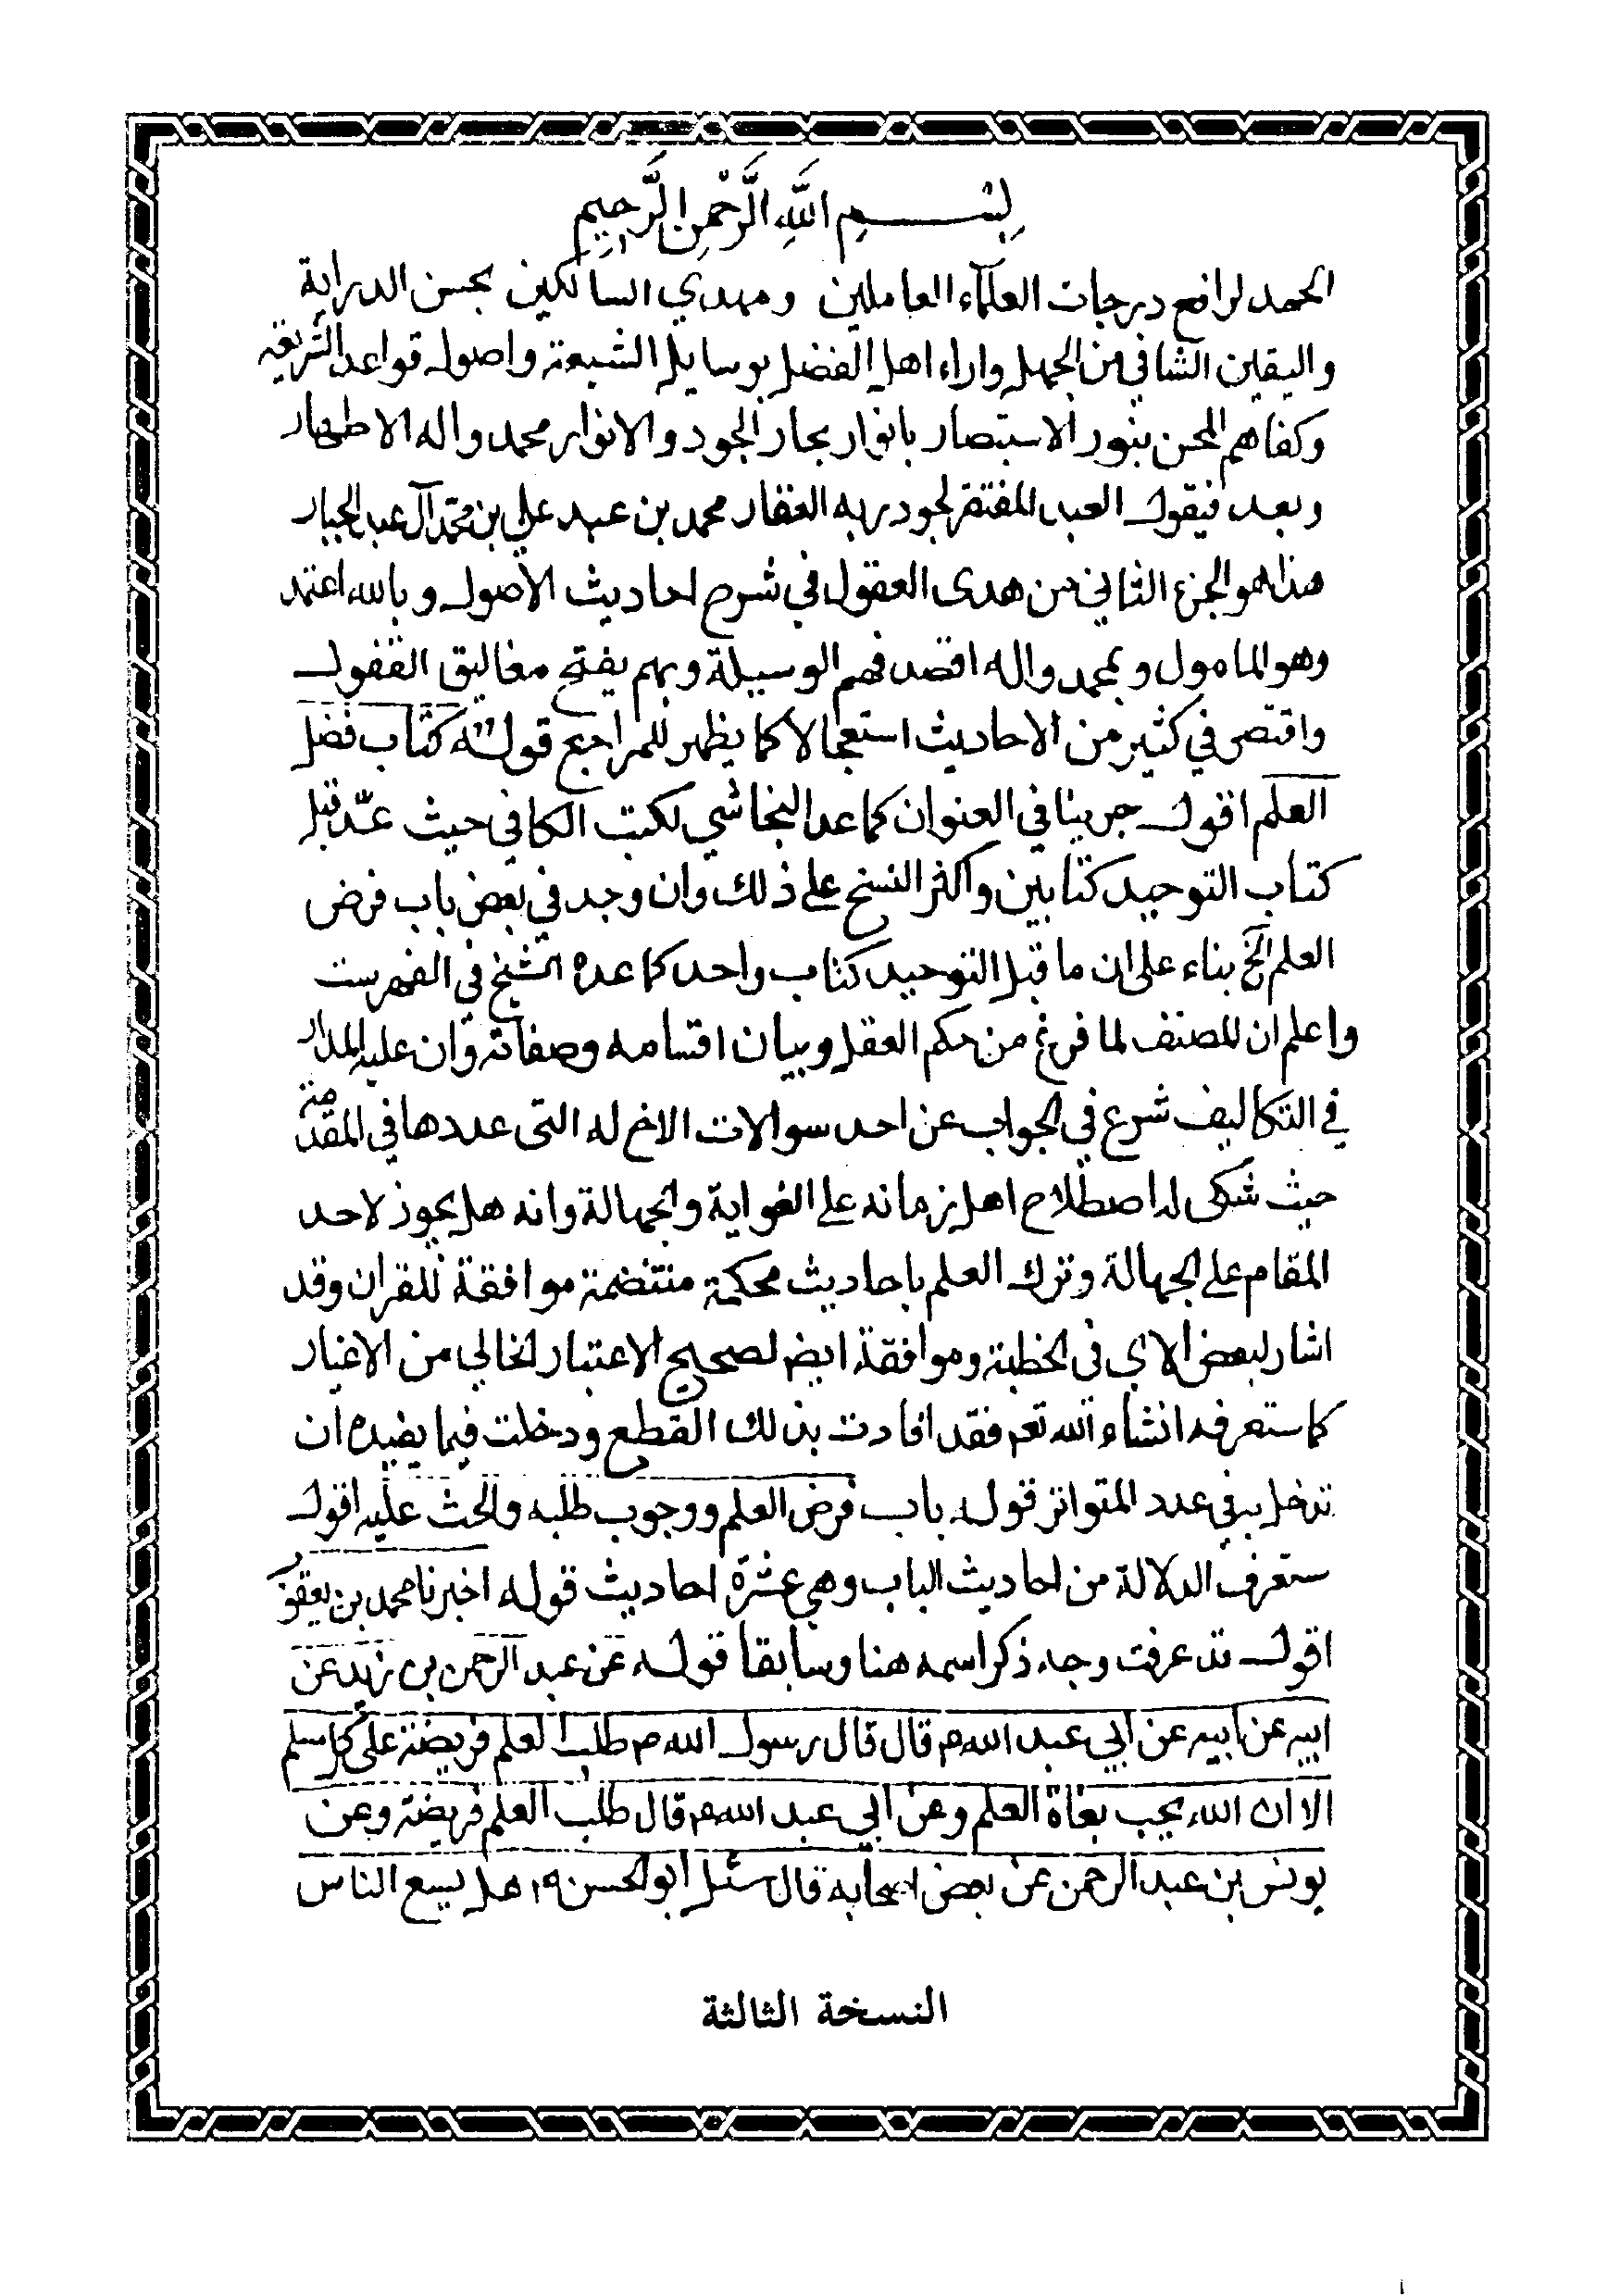 بِسْمِ اللَّهِ الرَّحْمنِ الرَّحِيمِ
الحمد لرافع درجات العلمآء العاملين ومهدي السالكين بحسن الدراية
واليقين الشافي من الجهل واراء اهل الفضل بوسايل الشيعة واصول قواعد الشريعة
وكفاهم المحن بنور الاستبصار بانوار بحار الجود والانوار محمد واله الاطهار
وبعد فيقول العبد المفتقر لجود ربه الغفار محمد بن عبد علي بن محمد آل عبد الجبار
هذا هو الجزء الثاني من هدى العقول في شرح احاديث الاصول وبالله اعتمد
وهو المامول وبمحمد واله اقصد فهم الوسيلة وبهم يفتح مغاليق القفول
واقتصر في كثير من الاحاديث استعجالا كما يظهر للمراجع قوله كتاب فضل
العلم اقول جرينا في العنوان كما عد النجاشي لكتب الكافي حيث عدّ قبل
كتاب التوحيد كتابين واكثر النسخ على ذلك وان وجد في بعض باب فرض
العلم الخ بناء على ان ما قبل التوحيد كتاب واحد كما عده الشيخ في الفهرست
واعلم ان المصنف لما فرغ من حكم العقل وبيان اقسامه وصفاته وان عليه المدار
في التكاليف شرع في الجواب عن احد سوالات الاخ له التى عددها في المقدمة
حيث شكى له اصطلاح اهل زمانه على الغواية والجهالة وانه هل يجوز لاحد
المقام على الجهالة وترك العلم باحاديث محكمة منتضمة موافقة للقران وقد
اشار لبعض الاي في الخطبة وموافقة ايض لصحيح الاعتبار الخالي من الاغيار
كما ستعرفه انشاء الله تعم فقد افادت بذلك القطع ودخلت فيما يفيده ان
تدخل به في عدد المتواتر قوله باب فرض العلم ووجوب طلبه والحث عليه اقول
ستعرف الدلالة من احاديث الباب وهي عشرة احاديث قوله اخبرنا محمد بن يعقوب
اقول قد عرفت وجه ذكر اسمه هنا وسابقا قوله عن عبد الرحمن بن زيد عن
ابيه عن ابيه عن ابي عبد الله م قال قال رسول الله ص طلب العلم فريضة على كل مسلم
الا ان الله يحب بغاة العلم وعن ابي عبد الله م قال طلب العلم فريضة وعن
يونس بن عبد الرحمن عن بعض اصحابه قال سئل ابو الحسن هل يسع الناس
النسخة الثالثة